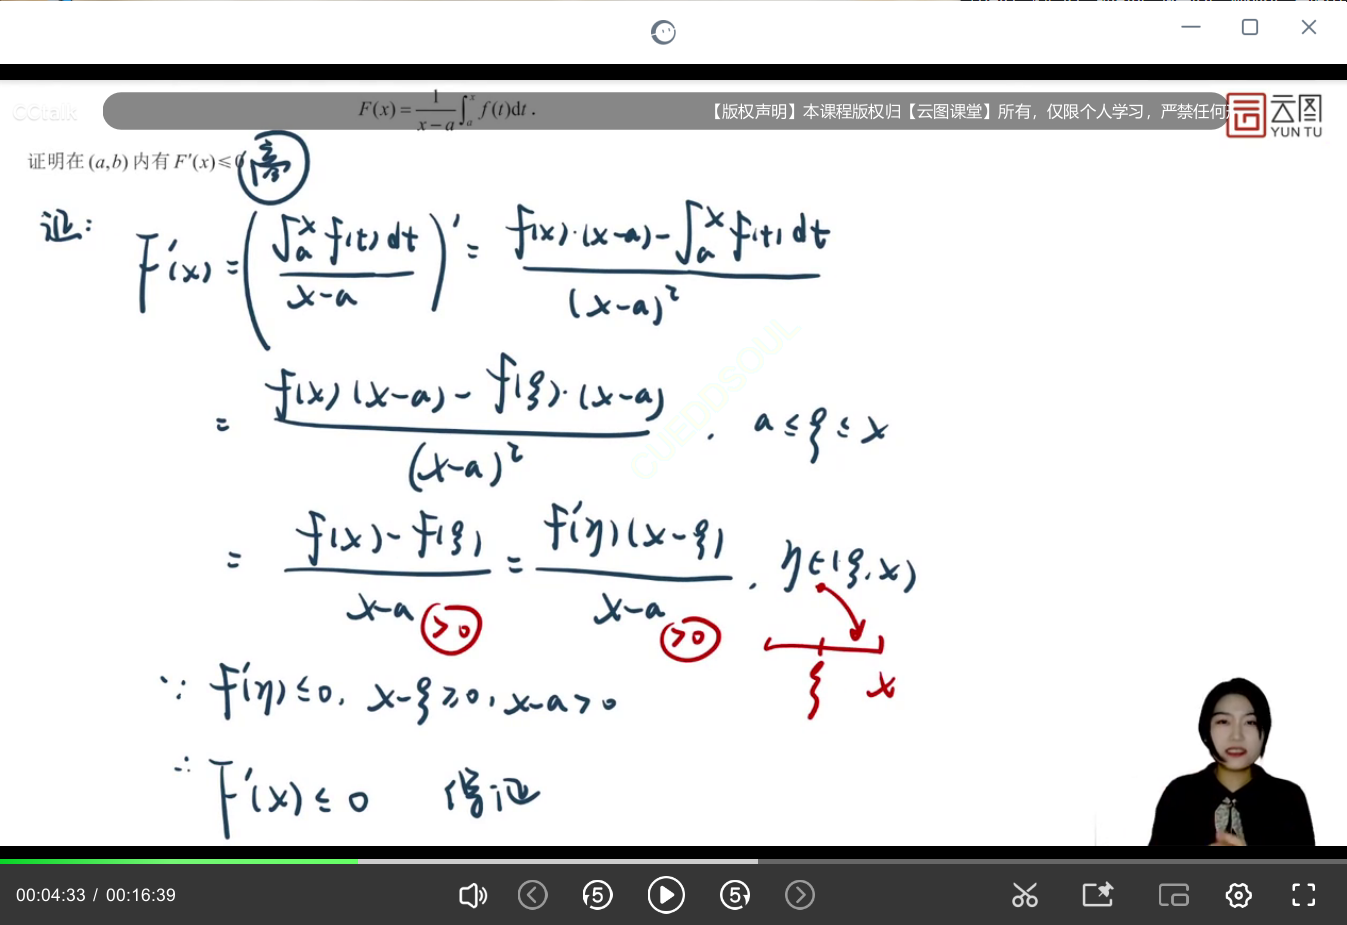 CCtalk
F(x) = 1/(x−a) ∫ₐˣ f(t)dt .
【版权声明】本课程版权归【云图课堂】所有，仅限个人学习，严禁任何
云图
YUN TU
证明在 (a,b) 内有 F′(x) ≤ 0
证:
F′(x) = ( ∫ₐˣ f(t) dt / (x−a) )′ = ( f(x)·(x−a) − ∫ₐˣ f(t) dt ) / (x−a)²
= ( f(x)(x−a) − f(ξ)·(x−a) ) / (x−a)² . a ≤ ξ ≤ x
= ( f(x) − f(ξ) ) / (x−a) = f′(η)(x−ξ) / (x−a) . η∈(ξ,x)
>0 >0
ξ x
∵ f′(η) ≤ 0, x−ξ ≥ 0, x−a > 0
∴ F′(x) ≤ 0 得证
CUEDDSOUL
00:04:33 / 00:16:39
5 5